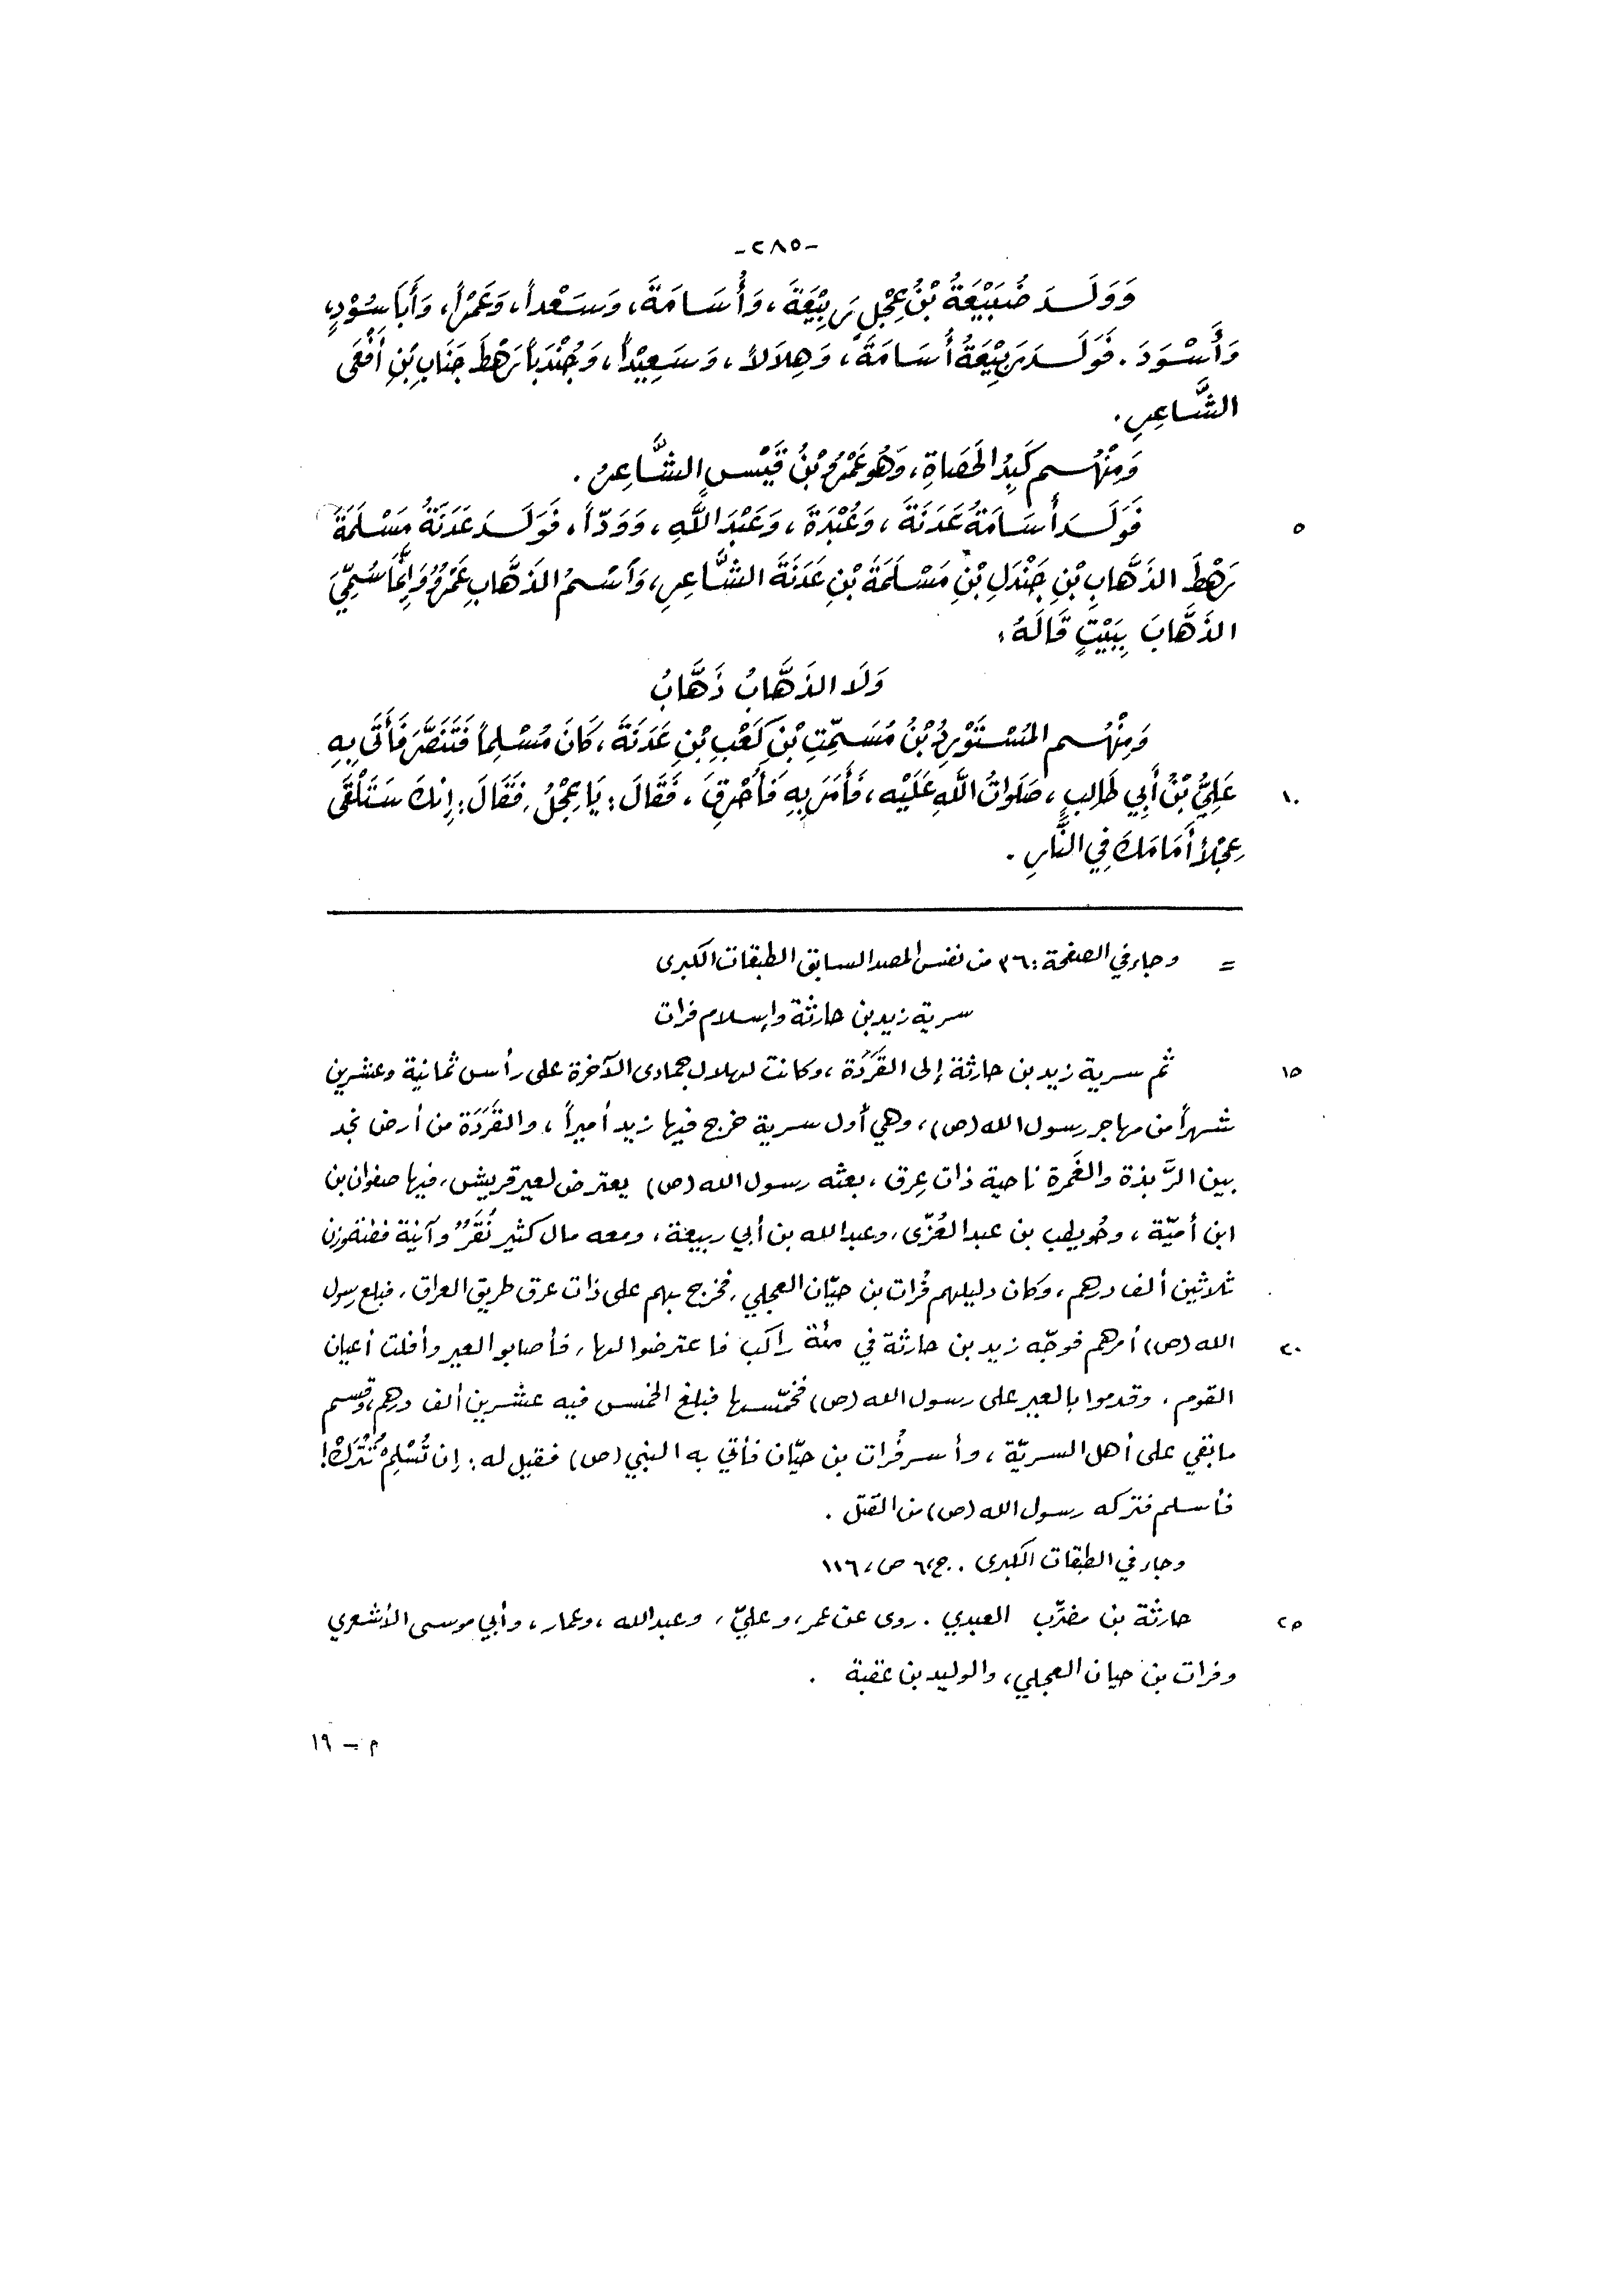 -٢٨٥-
وَوَلَدَ ضُبَيْعَةُ بْنُ عِجْلٍ رَبِيْعَةَ، وَأُسَامَةَ، وَسَعْداً، وَعَمْراً، وَأَبَا سُوْدٍ،
وَأَسْوَدَ. فَوَلَدَ رَبِيْعَةُ أُسَامَةَ، وَهِلَالاً، وَسَعِيْداً، وَجُنْدَباً رَهْطَ جَنَابِ بْنِ أَفْعَى
الشَّاعِرِ.
وَمِنْهُم كَبِدُ الحَصَاةِ، وَهُوَ عَمْرُو بْنُ قَيْسٍ الشَّاعِرُ.
٥ فَوَلَدَ أُسَامَةُ عَدَنَةَ، وَعُبْدَةَ، وَعَبْدَ اللَّهِ، وَوَدّاً، فَوَلَدَ عَدَنَةُ مَسْلَمَةَ
رَهْطَ الذَّهَّابِ بْنِ جَنْدَلِ بْنِ مَسْلَمَةَ بْنِ عَدَنَةَ الشَّاعِرِ، وَاسْمُ الذَهَّابِ عَمْرٌو وَإِنَّمَا سُمِّيَ
الذَهَّابَ بِبَيْتٍ قَالَهُ:
وَلَا الذَهَّابُ ذَهَّابُ
وَمِنْهُم المُسْتَوْرِدُ بْنُ مُسَمِّتِ بْنِ كَعْبِ بْنِ عَدَنَةَ، كَانَ مُسْلِماً فَتَنَصَّرَ فَأَتَى بِهِ
١٠ عَلِيُّ بْنُ أَبِي طَالِبٍ، صَلَوَاتُ اللَّهِ عَلَيْه، فَأَمَرَ بِهِ فَأُحْرِقَ، فَقَالَ: يَا عِجْلُ، فَقَالَ: إِنَّكَ سَتَلْقَى
عِجْلاً أَمَامَكَ فِي النَّارِ.
= وجاء في الصفحة: ٣٦ من نفس المصدر السابق الطبقات الكبرى
سرية زيد بن حارثة وإسلام فرات
١٥ ثم سرية زيد بن حارثة إلى القَرَدَة، وكانت لهلال جمادى الآخرة على رأس ثمانية وعشرين
شهراً من مهاجر رسول الله (ص)، وهي أول سرية خرج فيها زيد أميراً، والقَرَدَة من أرض نجد
بين الرَّبذة والغَمرة ناحية ذات عِرق، بعثه رسول الله (ص) يعترض لعير قريش، فيها صفوان بن
ابن أميّة، وحُويطب بن عبد العُزّى، وعبد الله بن أبي ربيعة، ومعه مال كثير نُقَرٌ وآنية فضة وزن
ثلاثين ألف درهم، وكان دليلهم فُرات بن حيّان العجلي، فخرج بهم على ذات عرق طريق العراق، فبلغ رسول
٢٠ الله (ص) أمرهم فوجّه زيد بن حارثة في مئة راكب فاعترضوا لها، فأصابوا العير وأفلت أعيان
القوم، وقدموا بالعير على رسول الله (ص) فخمّسها فبلغ الخمس فيه عشرين ألف درهم، وقسم
ما بقي على أهل السريّة، وأسر فُرات بن حيّان فأتي به النبي (ص) فقيل له: إن تُسْلِمْ تُتْرَكْ!
فأسلم فتركه رسول الله (ص) من القتل.
وجاء في الطبقات الكبرى. ج، ٦ ص، ١١٦
٢٥ حارثة بن مضرّب العبدي. روى عن عمر، وعليّ، وعبد الله، وعمار، وأبي موسى الأشعري
وفرات بن حيان العجلي، والوليد بن عقبة.
م - ١٩